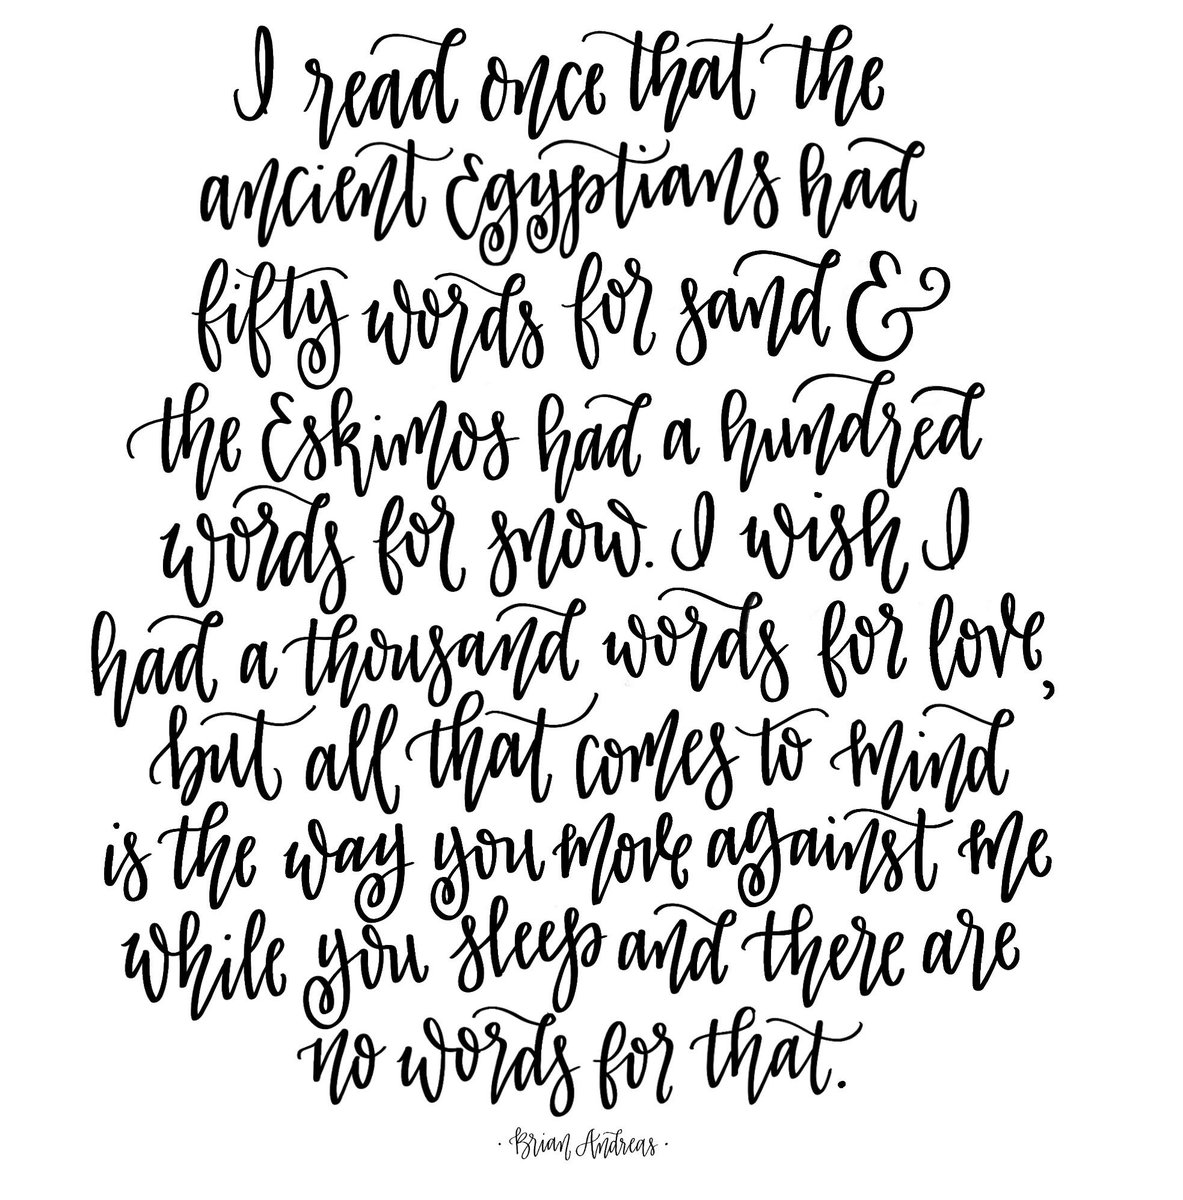 I read once that the
ancient Egyptians had
fifty words for sand &
the Eskimos had a hundred
words for snow. I wish I
had a thousand words for love,
but all that comes to mind
is the way you move against me
while you sleep and there are
no words for that.
· Brian Andreas ·